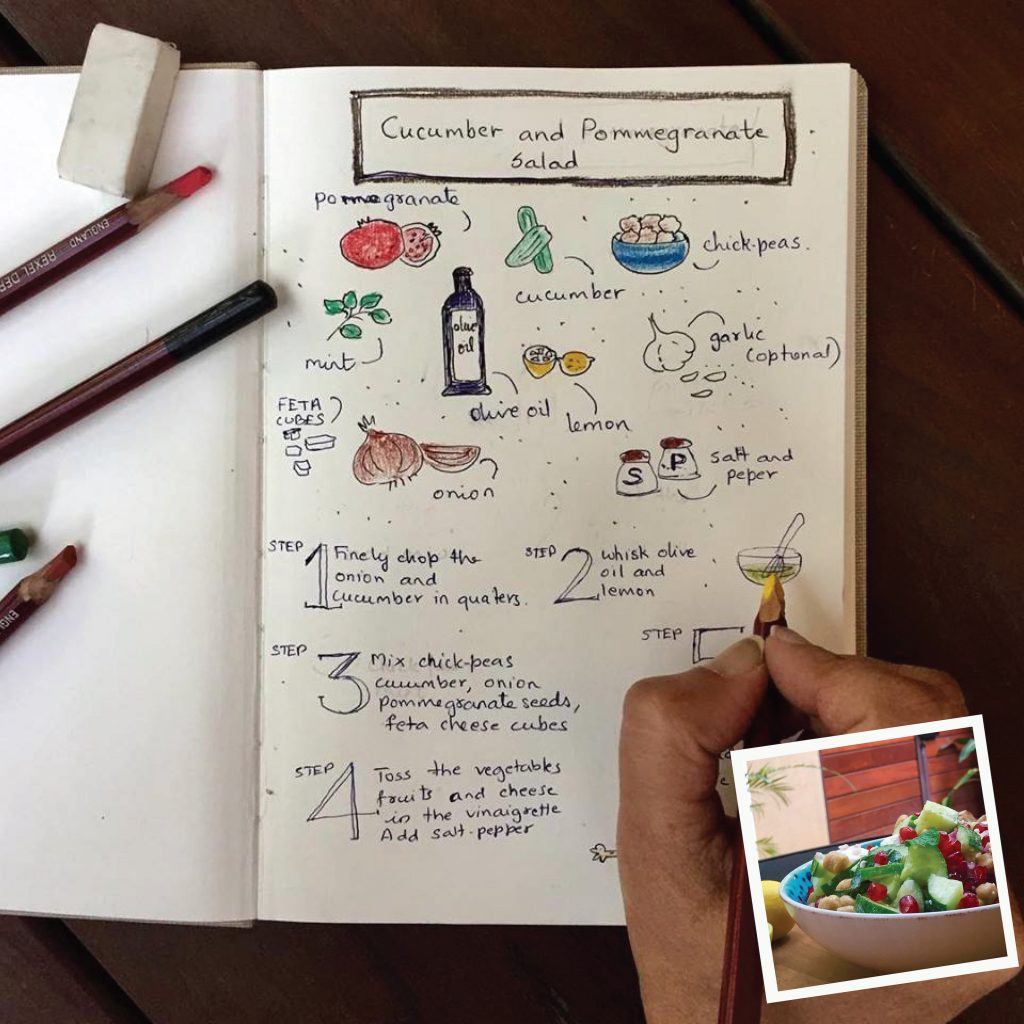 Cucumber and Pommegranate
Salad
pomegranate
chick-peas.
cucumber
mint
olive
oil
olive oil
lemon
garlic
(optional)
FETA
CUBES
onion
S
P
salt and
peper
STEP 1
Finely chop the
onion and
cucumber in quaters.
STEP 2
whisk olive
oil and
lemon
STEP 3
Mix chick-peas
cucumber, onion
pommegranate seeds,
feta cheese cubes
STEP 4
Toss the vegetables
fruits and cheese
in the vinaigrette
Add salt-pepper
STEP
REXEL
ENGLAND